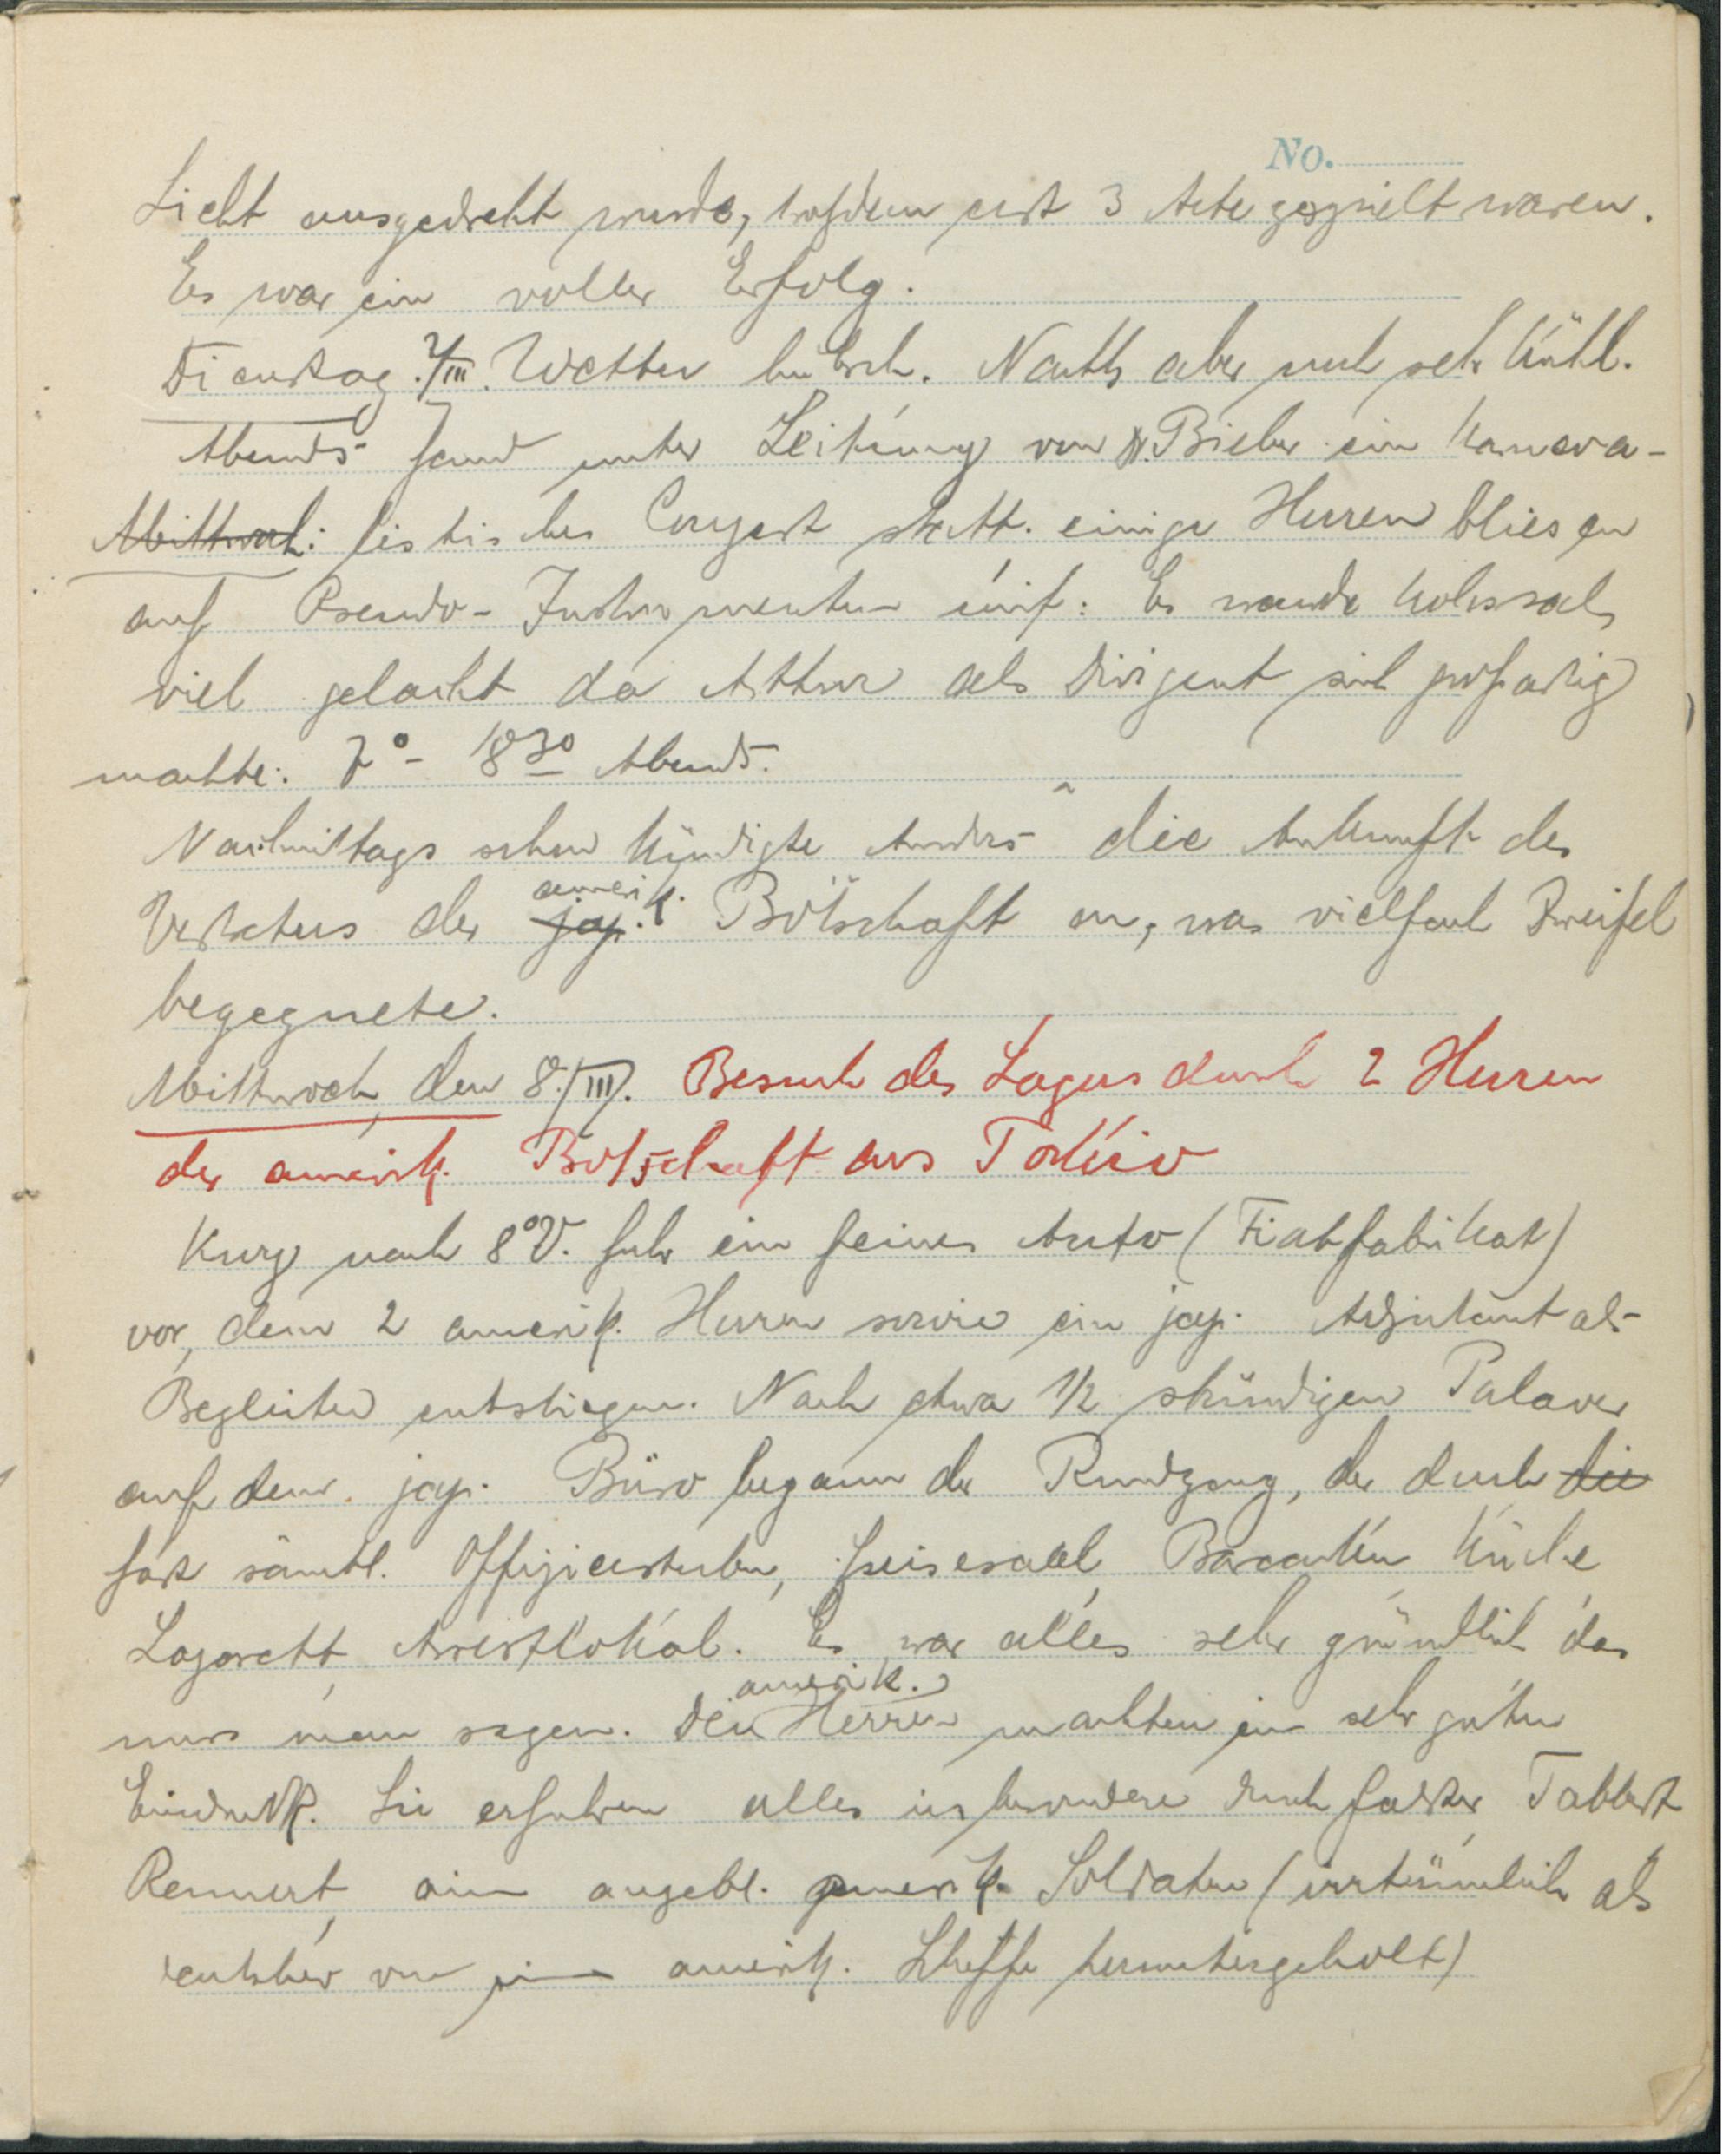 No.
Licht ausgedreht wurde, trotzdem erst 3 Akte gespielt waren.
Es war ein voller Erfolg.
Dienstag. 7/III. Wetter hübsch. Nachts aber noch sehr kühl.
Abends fand unter Leitung von H. Bieber ein karneva-
Mittwoch: listisches Conzert statt. einige Herren bliesen
auf Pseudo-Instrumenten Es wurde kolossal
viel gelacht da Arthur als Dirigent sich großartig
machte. 7° - 8 30 Abends.
Nachmittags schon kündigte Anders die Ankunft des
Vertreters der jap. amerik. Botschaft an, was vielfach Zweifel
begegnete.
Mittwoch, den 8./III. Besuch des Lagers durch 2 Herren
der amerik. Botschaft aus Tokio
Kurz nach 8° V. fuhr ein feines Auto (Fiatfabrikat)
vor, dem 2 amerik. Herren sowie ein jap. Adjutant als
Begleiter entstiegen. Nach etwa 1/2 stündigen Palaver
auf dem jap. Büro begann der Rundgang, der durch die
fast sämtl. Offizierstuben, Speisesaal, Baracken, Küche
Lazarett, Arrestlokal. Es war alles sehr gründlich das
muss man sagen. Die amerik. Herren machten ein sehr guten
Eindruck. Sie erfuhren alles insbesondere durch Tabbert
Rennert, ein angebl. amerik. Soldaten (irrtümlich als
deutscher von amerik. Schiffe heruntergeholt)